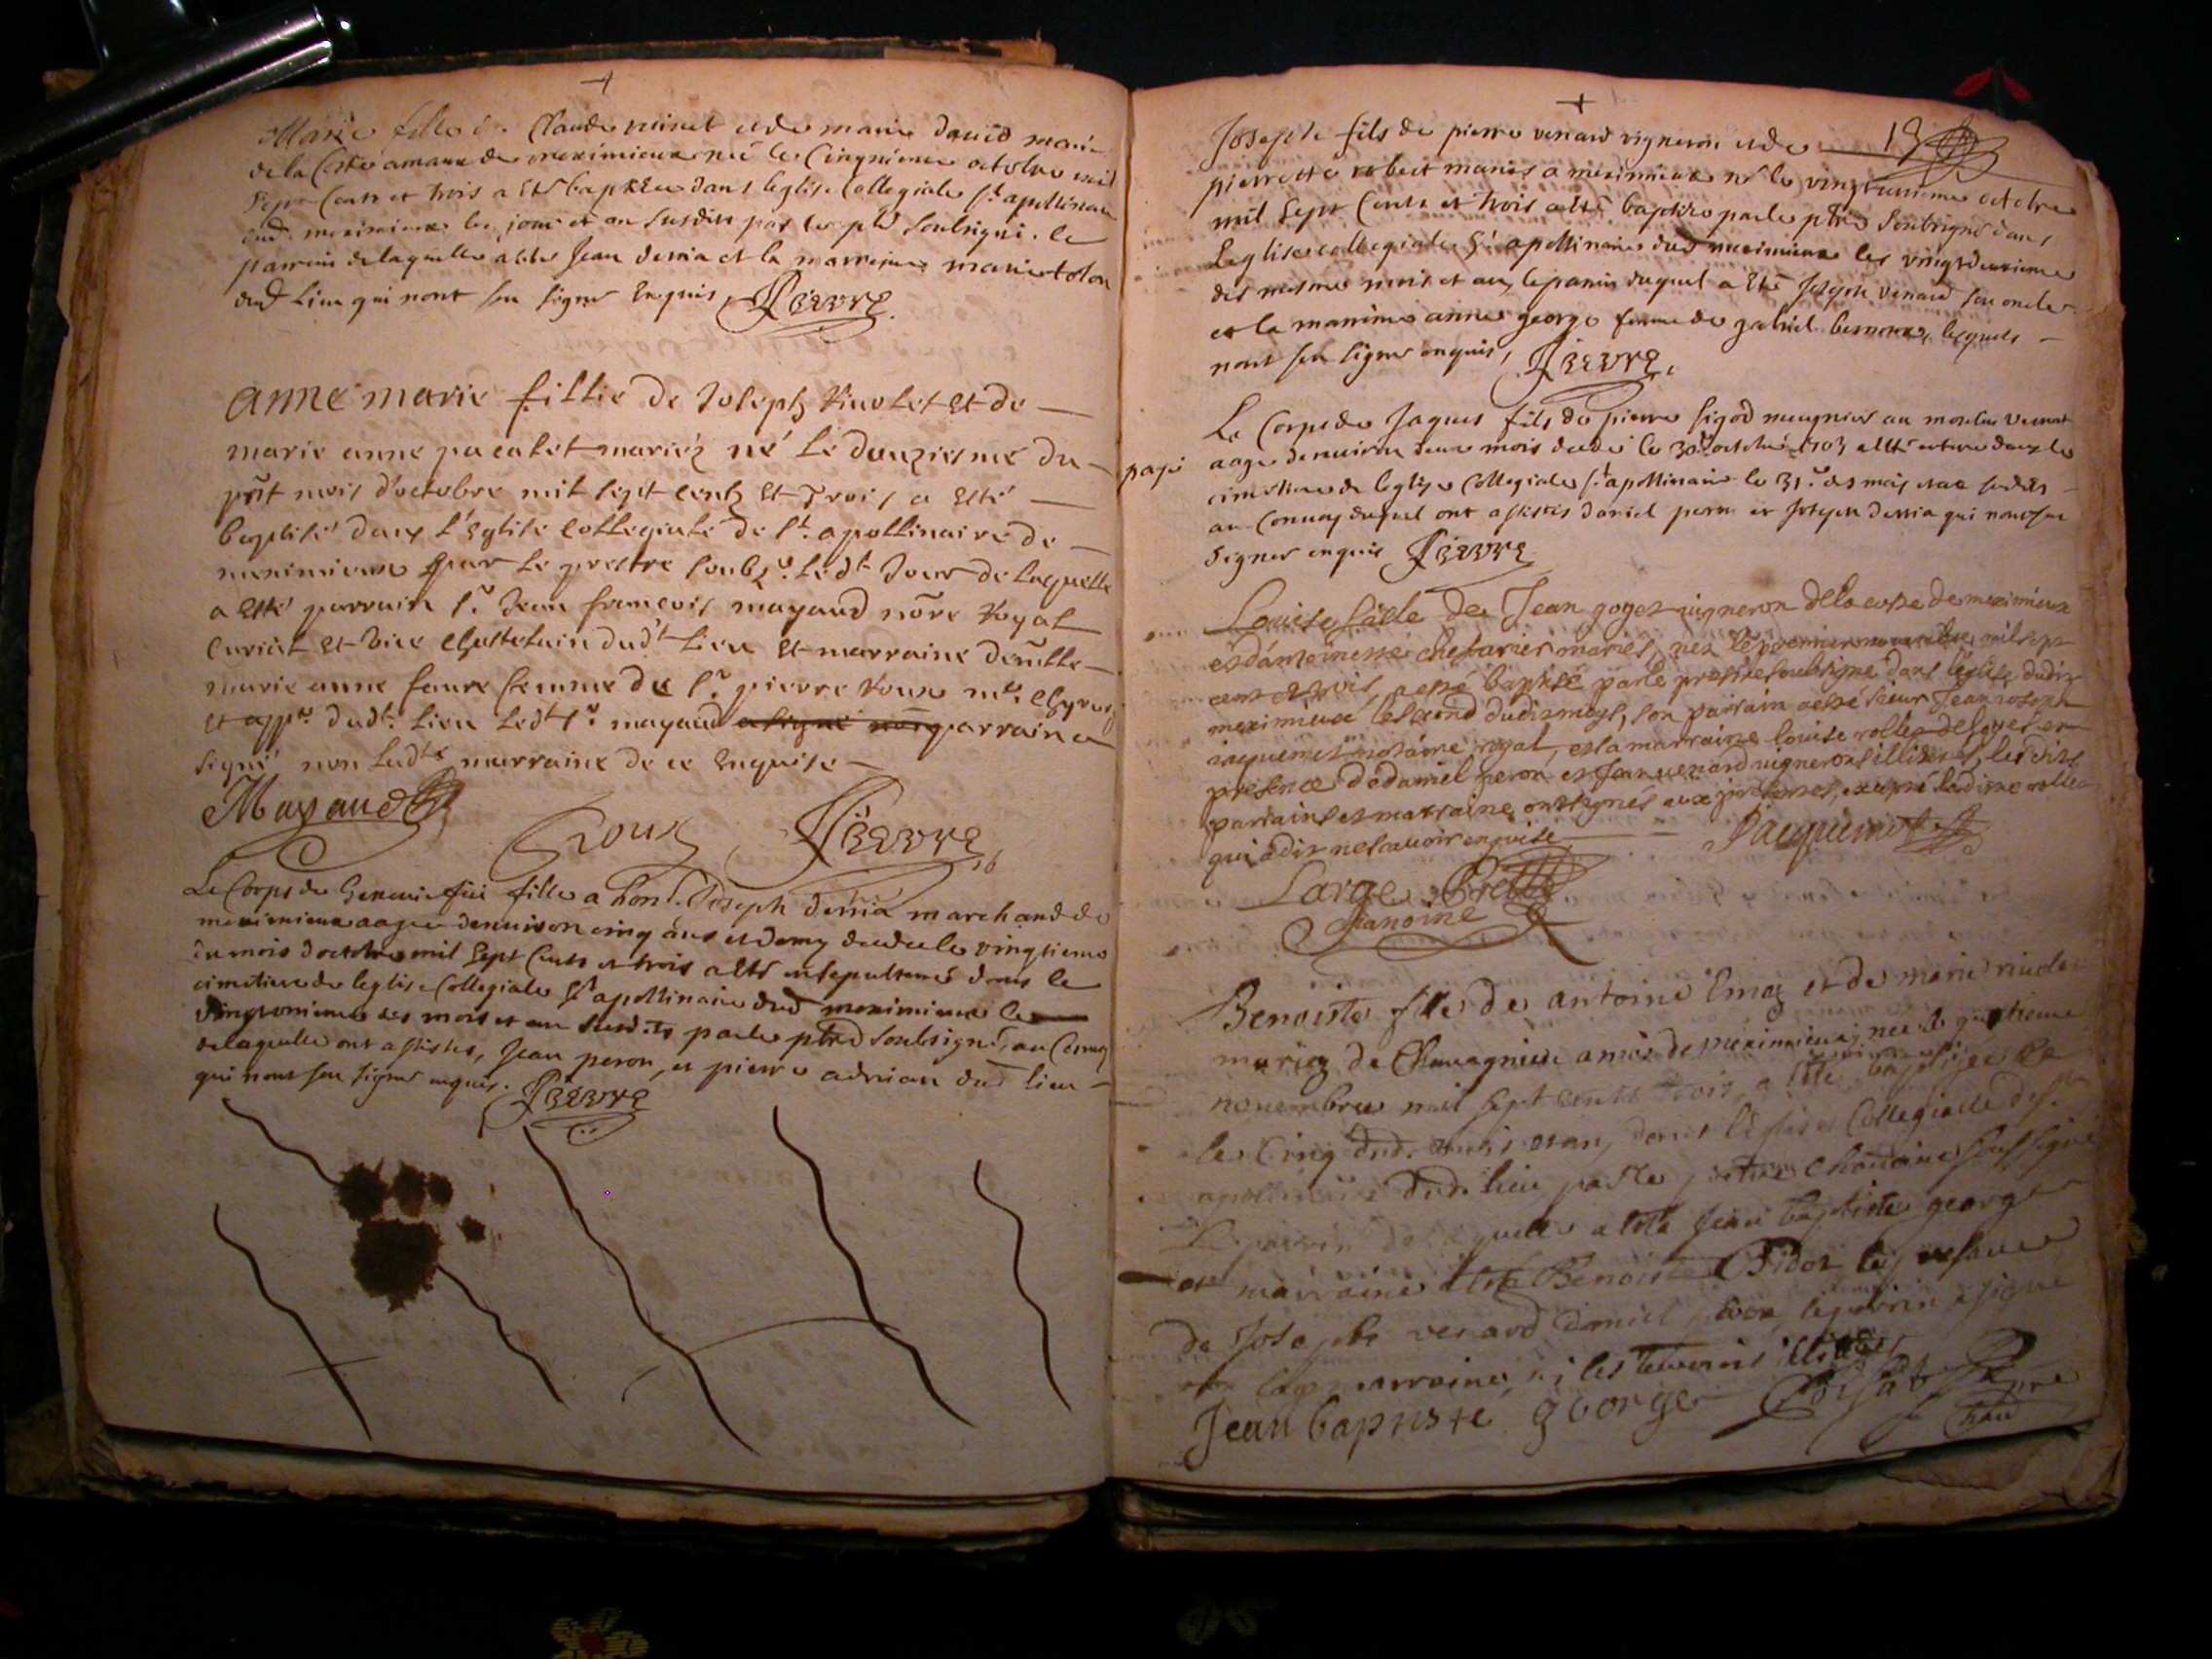 Marie fille de Claude et de marie david mariés
de la Coste amanx de meximieux né le Cinqnieme octobre mil
Sept Cents et trois a Esté baptizée dans leglise Collegiale St apollinaire
dud. meximieux les jour et an susdits par le ptre soubsigné. le
parrein de laquelle a esté Jean derria et la marreine marie tolon
dud Lieu qui nont sceu signer Enquis, Fieuvre.
anne marie fillie de Joseph et de
marie anne pacalet mariéz né le douziesme du
pñt mois d'octobre mil sept centz et Trois a Esté
baptisé dans l'Eglise Collegiale de St. apollinaire de
meximieux par Le prestre soubz.é Ledt Jour de laquelle
a Esté parrain Sr. Jean françois mayaud nõre Royal
Curial et Vice Chastelain dudt Lieu et marraine
marie anne faure femme de Sr. pierre Roux me.
et app.e dudt. Lieu Ledt Sr. mayaud a signé non parrain a
signé non Ladte marraine de ce Enquise
Mayaud Roux Fieuvre
Le Corps de fille a hon. Joseph derria marchand de
meximieux aagée denviron cinq ans et demy decedée le vingtieme
du mois doctobre mil Sept Cents et trois a esté dans le
cimetiere de leglise Collegiale St apollinaire dud meximieux le
des mois et an susdits par le ptre soubsigné, au Convoy
de laquelle ont assistés, Jean peron, et pierre adrian dud lieu
qui nont sceu signer enquis. Fieuvre
19
Joseph fils de pierre venard vigneron et de
pierrette robert mariés a meximieux né le vingtunieme octobre
mil Sept Cents et trois a esté baptizé par le ptre soubsigné dans
Leglise collegiale St apollinaire dud meximieux les vingtdeuxieme
des mesmes mois et an, le parrin duquel a Esté Joseph venard son oncle
et la marrine anne george femme de gabriel lesquels
nont sceu signer enquis, Fieuvre.
payé
Le Corps de Jaques fils de pierre sigod meugnier au moulin
aagé denviron deux mois decedé le 30e octobre 1703 a esté enterré dans le
cimetiere de leglise Collegiale St apollinaire le 31e des mois et an susdits
au Convoy duquel ont assistés daniel peron et Joseph derria qui nont sceu
signer enquis Fieuvre
Louise fille de Jean goyet vigneron de la coste de meximieux
et dantoinette mariés, née le premier novembre mil sept
cent et trois, a esté baptisé par le prestre soubsigné dans l'eglise dudit
meximieux le second dudit moys, son parrain a esté sieur Jean Joseph
jaquemet notaire royal, et la marraine louise rollet
presence de daniel peron et Jean venard vignerons illiteres, lesdits
parrain et marraine ont signés excepté ladite rollet
qui a dit ne scavoir enquise
Jacquemet
Large
Chanoine
Benoiste fille de antoine Emoz et de marie
mariez de Chavagnieu amis de meximieux, née le quatrieme
novembre mil sept cents trois, a esté baptisée
le Cinq dud. mois et an, dans l'eglise Collegialle de St
apollinaire dud. lieu par le prestre Chanoine soussigné
Le parrin de laquelle a esté Jean baptiste george
et marraine a esté Benoiste presence
de Joseph venard daniel peron, le parrin a signé
non la marraine, ni les temoins
Jean baptiste george